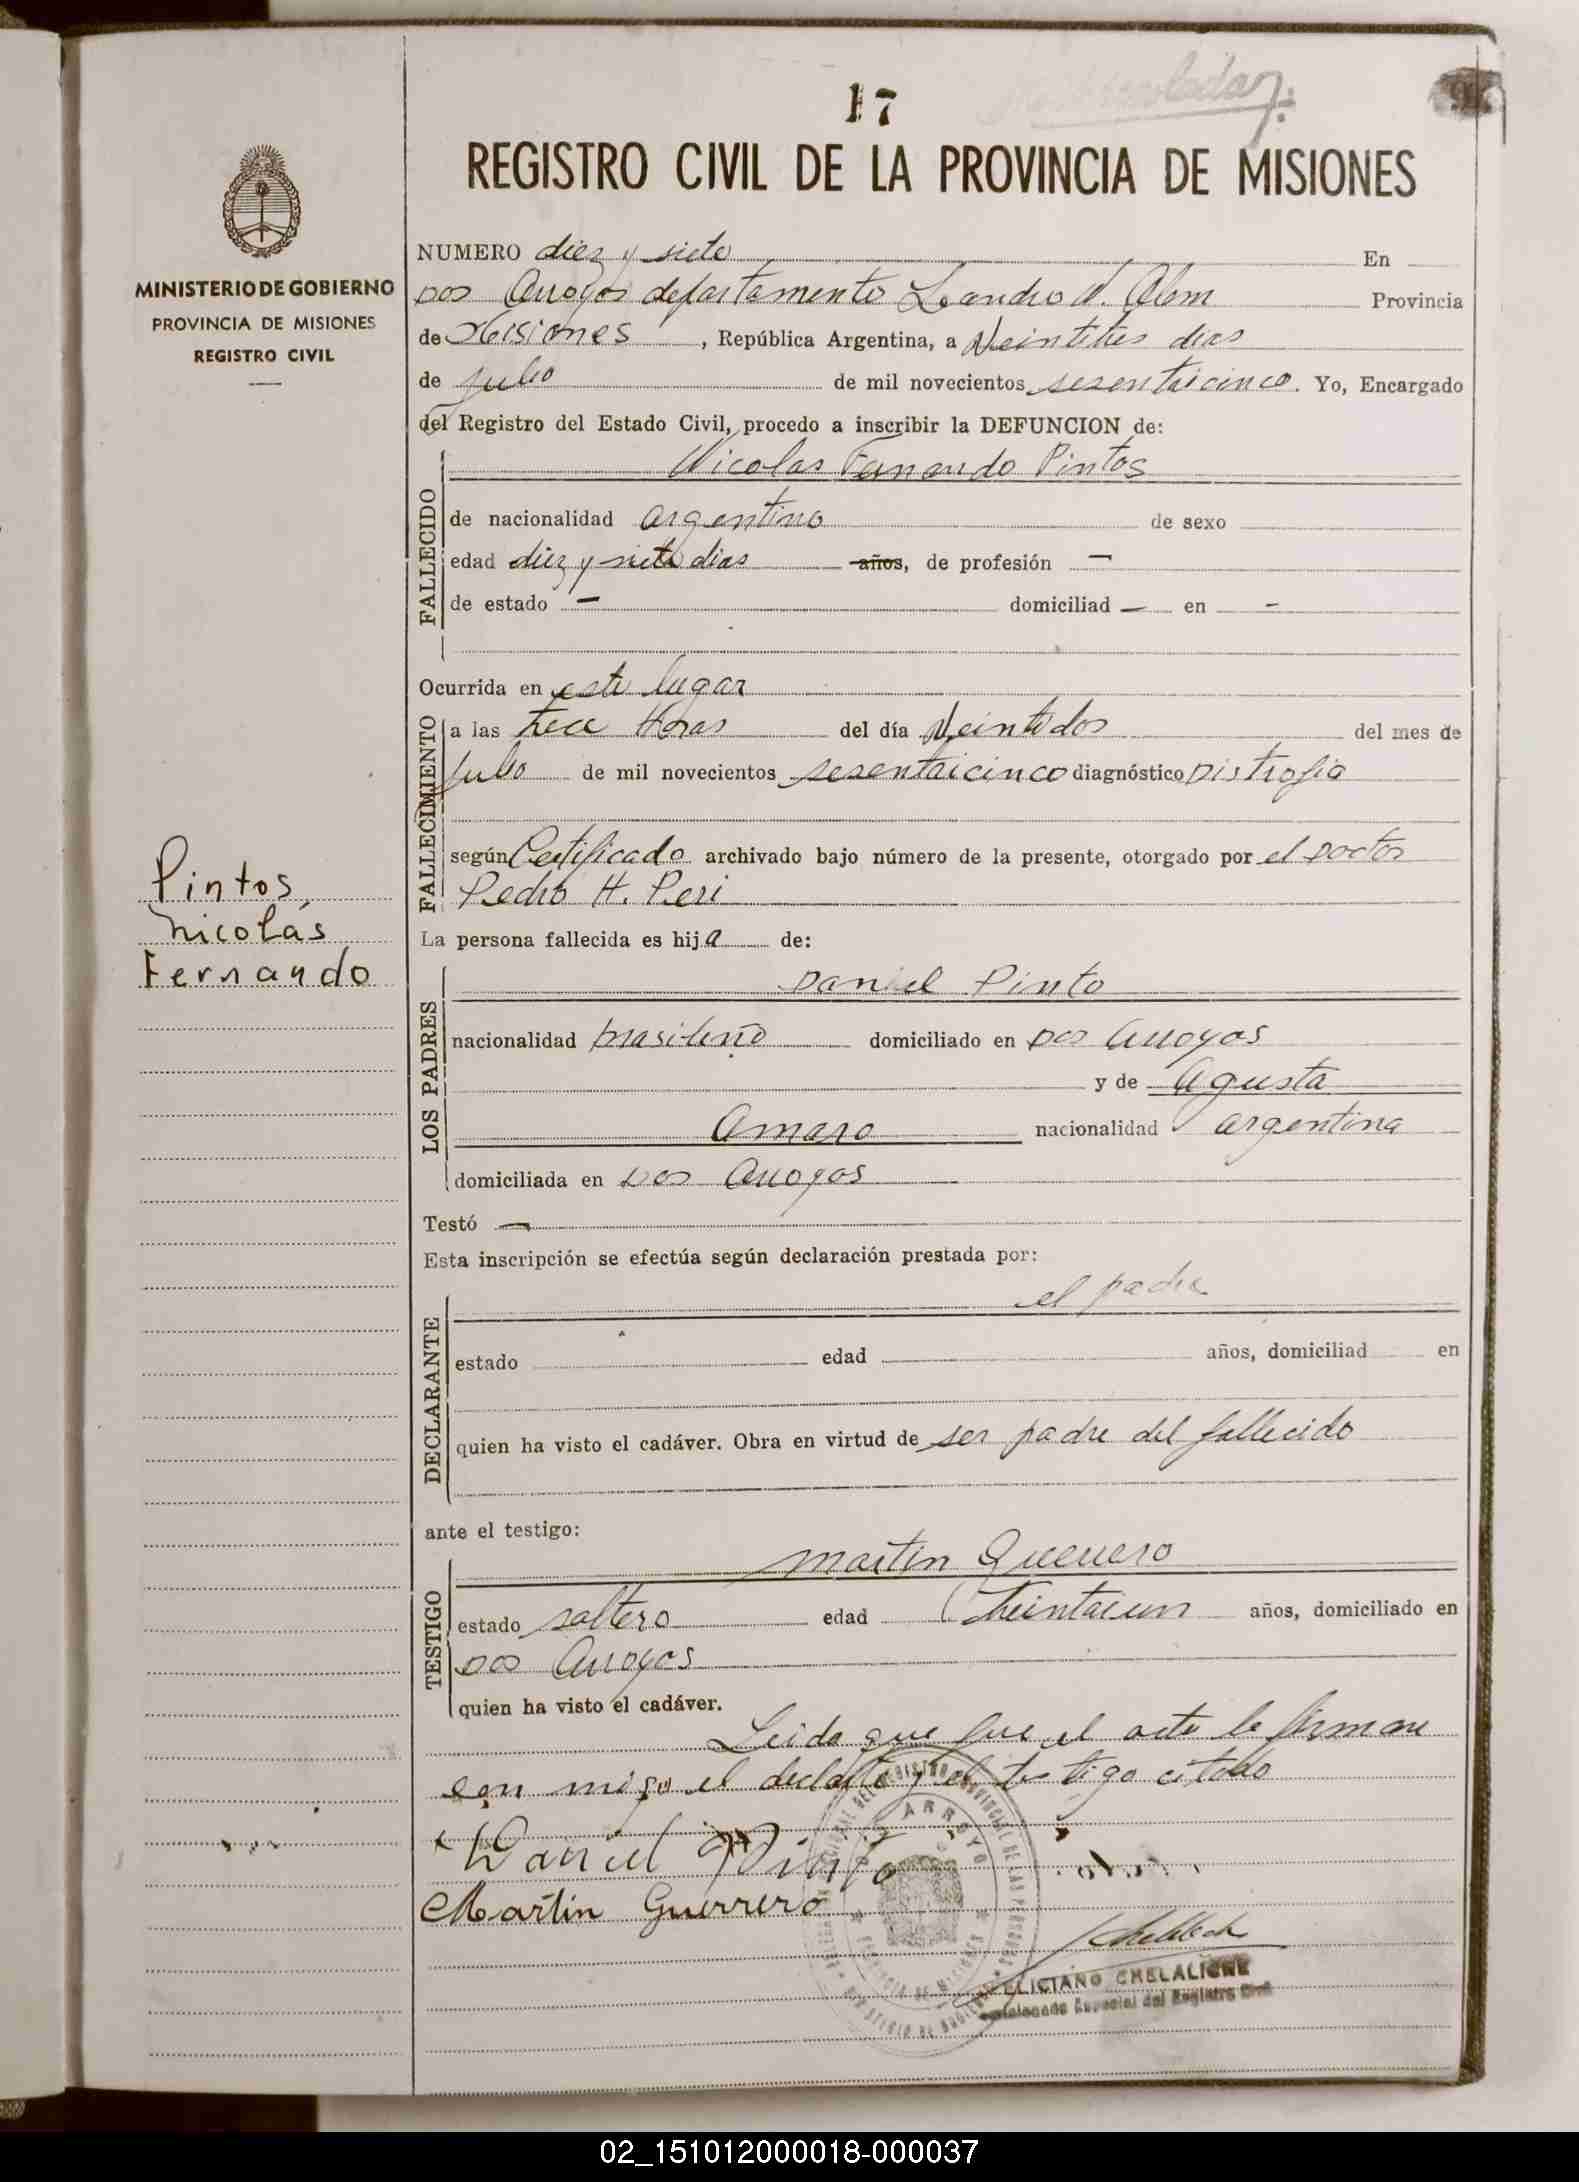 17
REGISTRO CIVIL DE LA PROVINCIA DE MISIONES
MINISTERIO DE GOBIERNO
PROVINCIA DE MISIONES
REGISTRO CIVIL
NUMERO diez y siete En
Dos Arroyos departamento Leandro N. Alem Provincia
de Misiones, República Argentina, a Veintitres dias
de julio de mil novecientos sesentaicinco. Yo, Encargado
del Registro del Estado Civil, procedo a inscribir la DEFUNCION de:
Nicolas Fernando Pintos
FALLECIDO
de nacionalidad argentino de sexo
edad diez y siete dias años, de profesión —
de estado — domiciliad — en -
Ocurrida en este lugar
FALLECIMIENTO
a las trece Horas del día Veintidos del mes de
julio de mil novecientos sesentaicinco diagnóstico Distrofia
según Certificado archivado bajo número de la presente, otorgado por el Doctor
Pedro H. Peri
La persona fallecida es hija de:
LOS PADRES
Daniel Pinto
nacionalidad brasileño domiciliado en Dos Arroyos
y de Agusta
Amaro nacionalidad argentina
domiciliada en Dos Arroyos
Testó —
Esta inscripción se efectúa según declaración prestada por:
DECLARANTE
el padre
estado edad años, domiciliad en
quien ha visto el cadáver. Obra en virtud de ser padre del fallecido
ante el testigo:
TESTIGO
Martin Guerrero
estado soltero edad treintaiun años, domiciliado en
Dos Arroyos
quien ha visto el cadáver.
Leida que fue el acta la firman
con migo el declate y el testigo citado
Daniel Pinto
Martin Guerrero
FELICIANO CHELALICHE
Delegado Especial del Registro Civil
Pintos,
Nicolás
Fernando
02_151012000018-000037